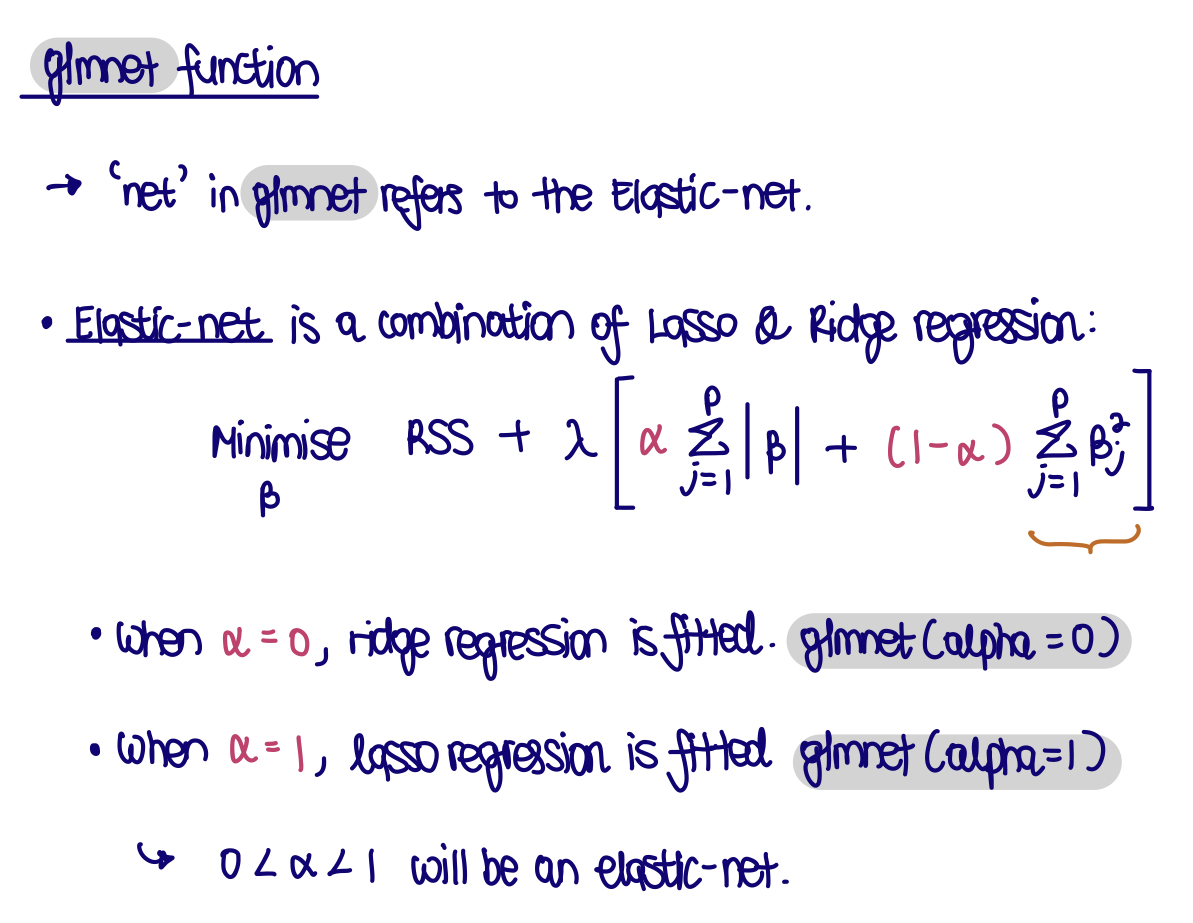 glmnet function
→ ‘net’ in glmnet refers to the Elastic-net.
• Elastic-net is a combination of Lasso & Ridge regression:
Minimise β RSS + λ [ α Σ_{j=1}^{p} |β| + (1-α) Σ_{j=1}^{p} β_j^2 ]
• When α = 0, ridge regression is fitted. glmnet(alpha = 0)
• When α = 1, lasso regression is fitted glmnet(alpha=1)
↳ 0 < α < 1 will be an elastic-net.